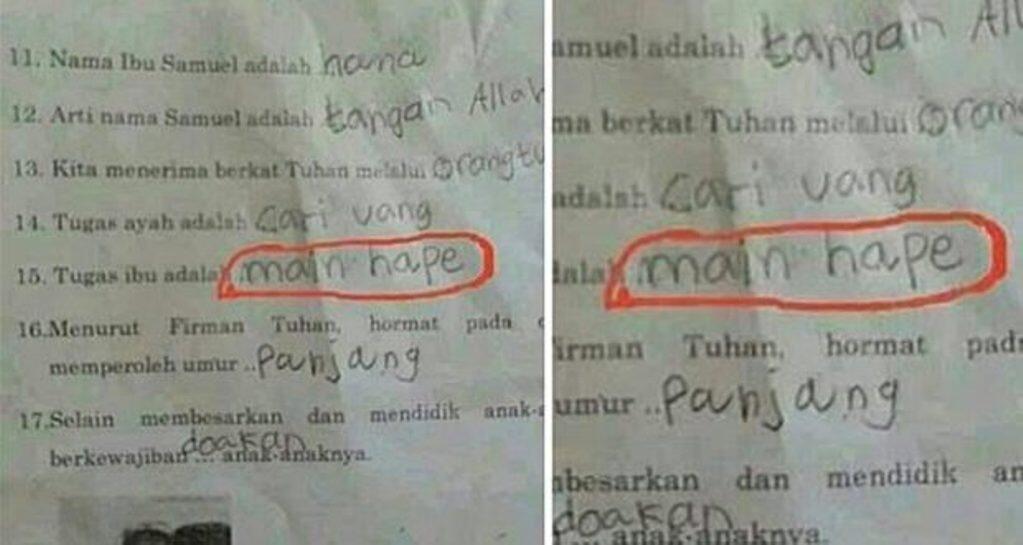 11. Nama Ibu Samuel adalah hana
12. Arti nama Samuel adalah tangan Allah
13. Kita menerima berkat Tuhan melalui Orangtu
14. Tugas ayah adalah Cari uang
15. Tugas ibu adalah main hape
16.Menurut Firman Tuhan, hormat pada
memperoleh umur ..panjang
17.Selain membesarkan dan mendidik anak-
berkewajiban ... doakan anak-anaknya.
amuel adalah tangan All
ma berkat Tuhan melalui Orang
adalah Cari uang
alah main hape
irman Tuhan, hormat pad
umur ..panjang
besarkan dan mendidik an
doakan
... anak-anaknya.